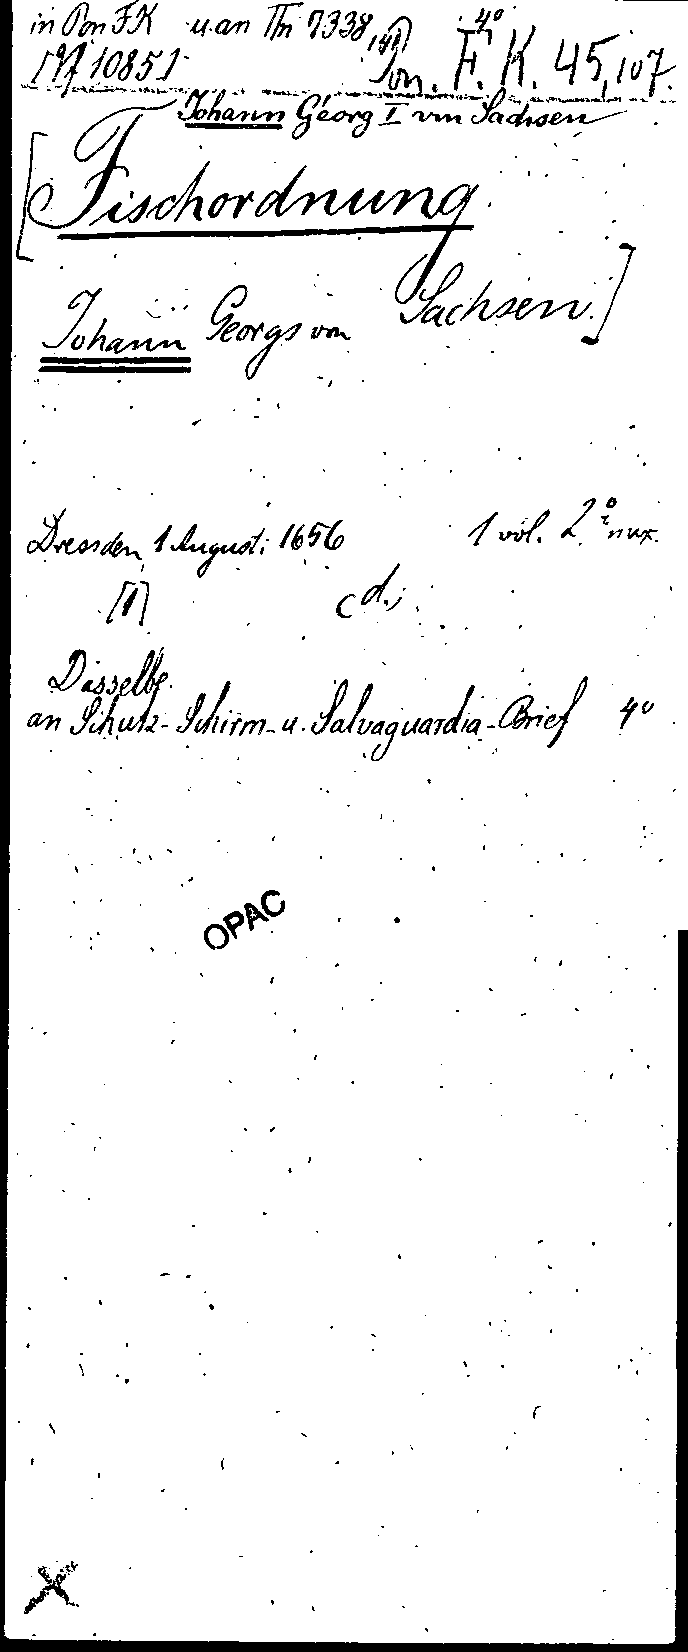 in Pon FK u. an Th 7338, 4°
Pon. F. K. 45,107.
10851
Johann Georg I von Sachsen
[Fischordnung
Johann Georgs von Sachsen.]
Dresden, 1 Augusti 1656 1 vol. 2°
[1] cd.
Dasselbe.
an Schutz- Schirm- u. Salvaguardia-Brief 4°
OPAC